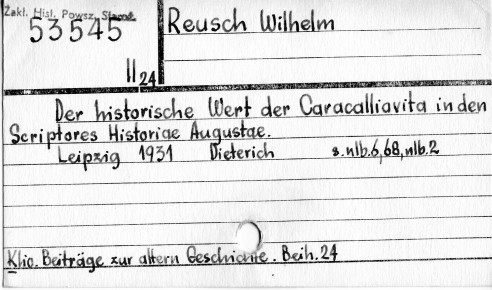 Zakł. Hist. Powsz. Staroż.
53545
II 24
Reusch Wilhelm
Der historische Wert der Caracallavita in den
Scriptores Historiae Augustae.
Leipzig 1931 Dieterich s. nlb. 6, 68, nlb. 2
Klio. Beiträge zur altern Geschichte. Beih. 24